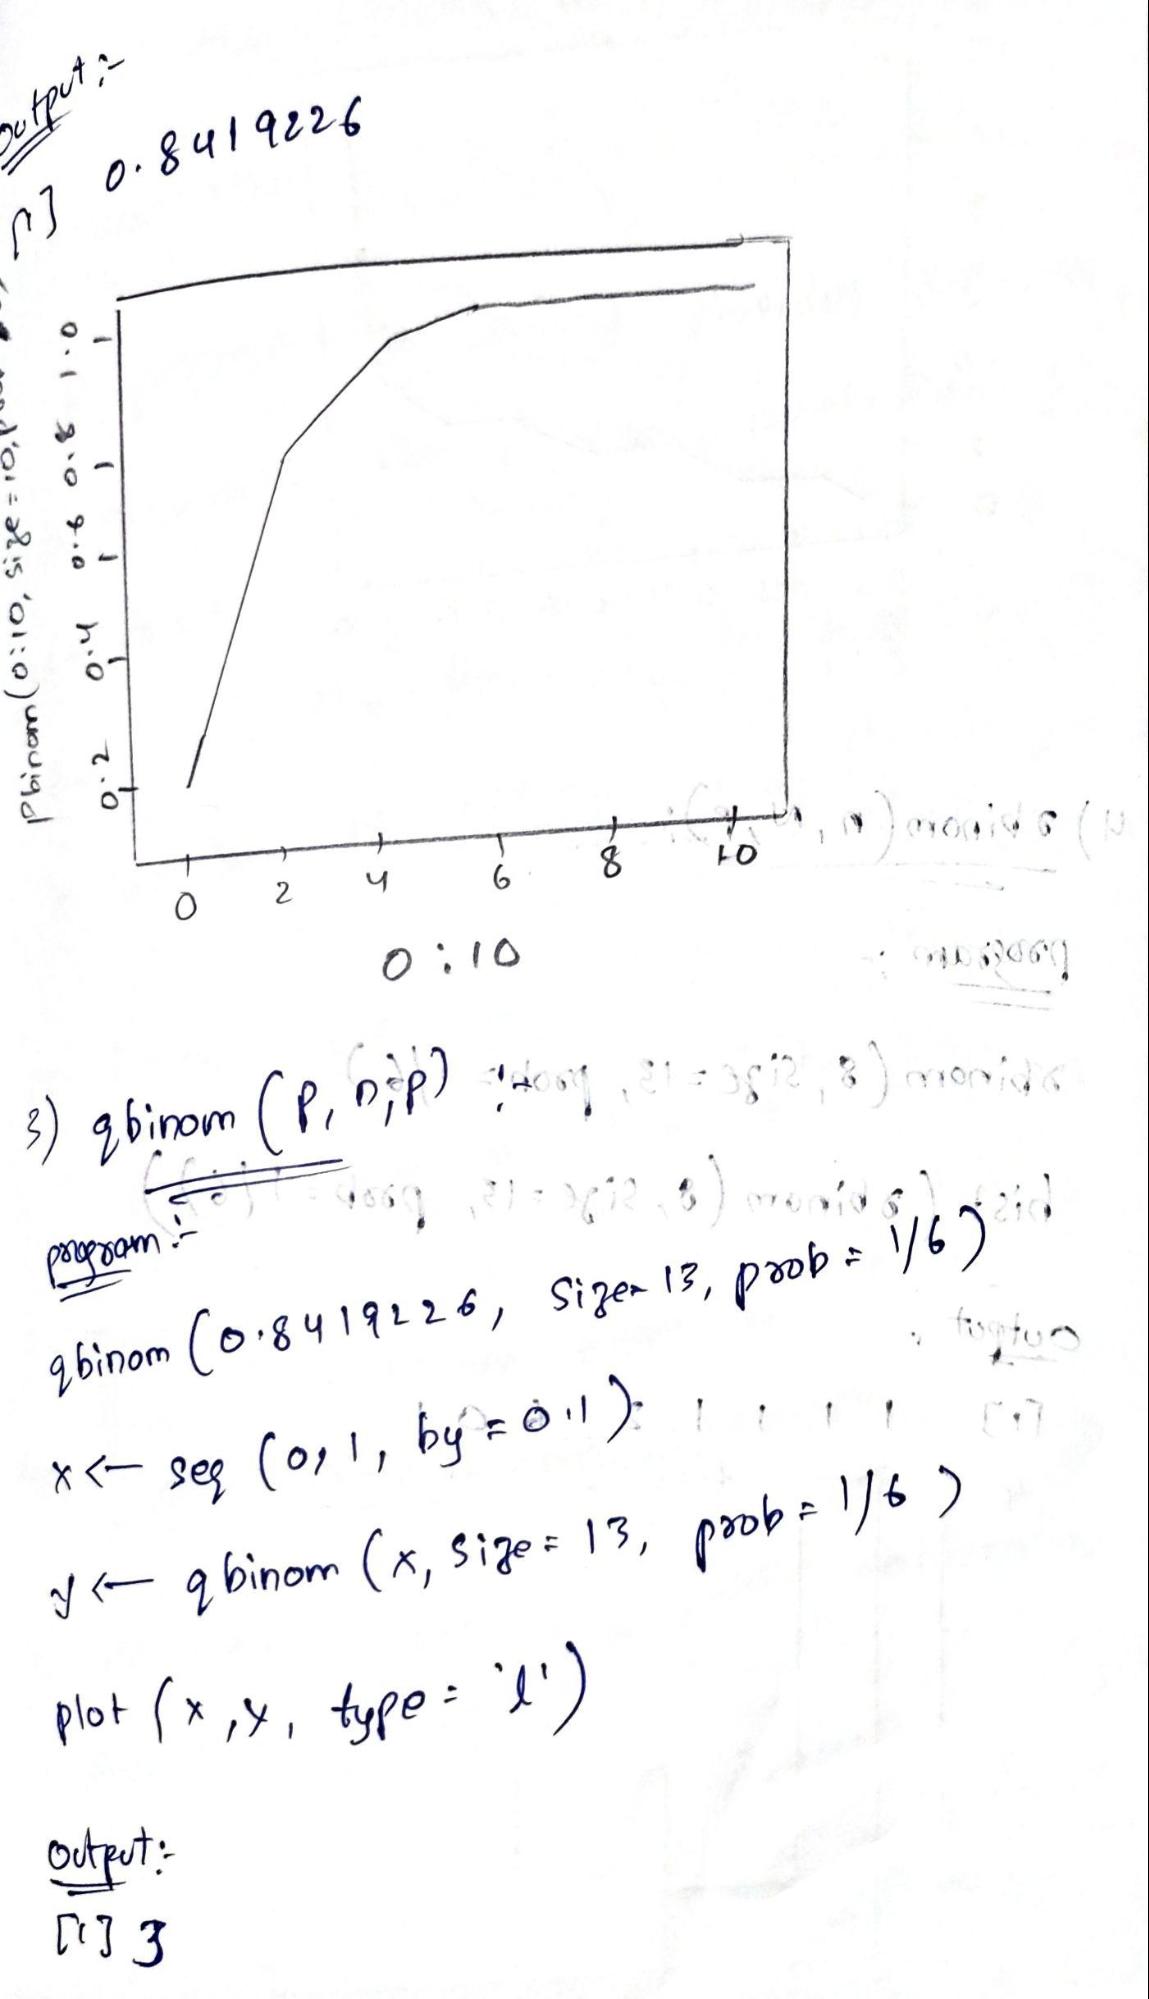 Output :-
[1] 0.8419226
pbinom(0:10, size = 10,
1.0
0.8
0.6
0.4
0.2
0 2 4 6 8 10
0 : 10
3) qbinom (P, n, p) :-
program :-
qbinom (0.8419226, size = 13, prob = 1/6)
x <- seq (0, 1, by = 0.1)
y <- qbinom (x, size = 13, prob = 1/6)
plot (x, y, type = 'l')
Output :-
[1] 3